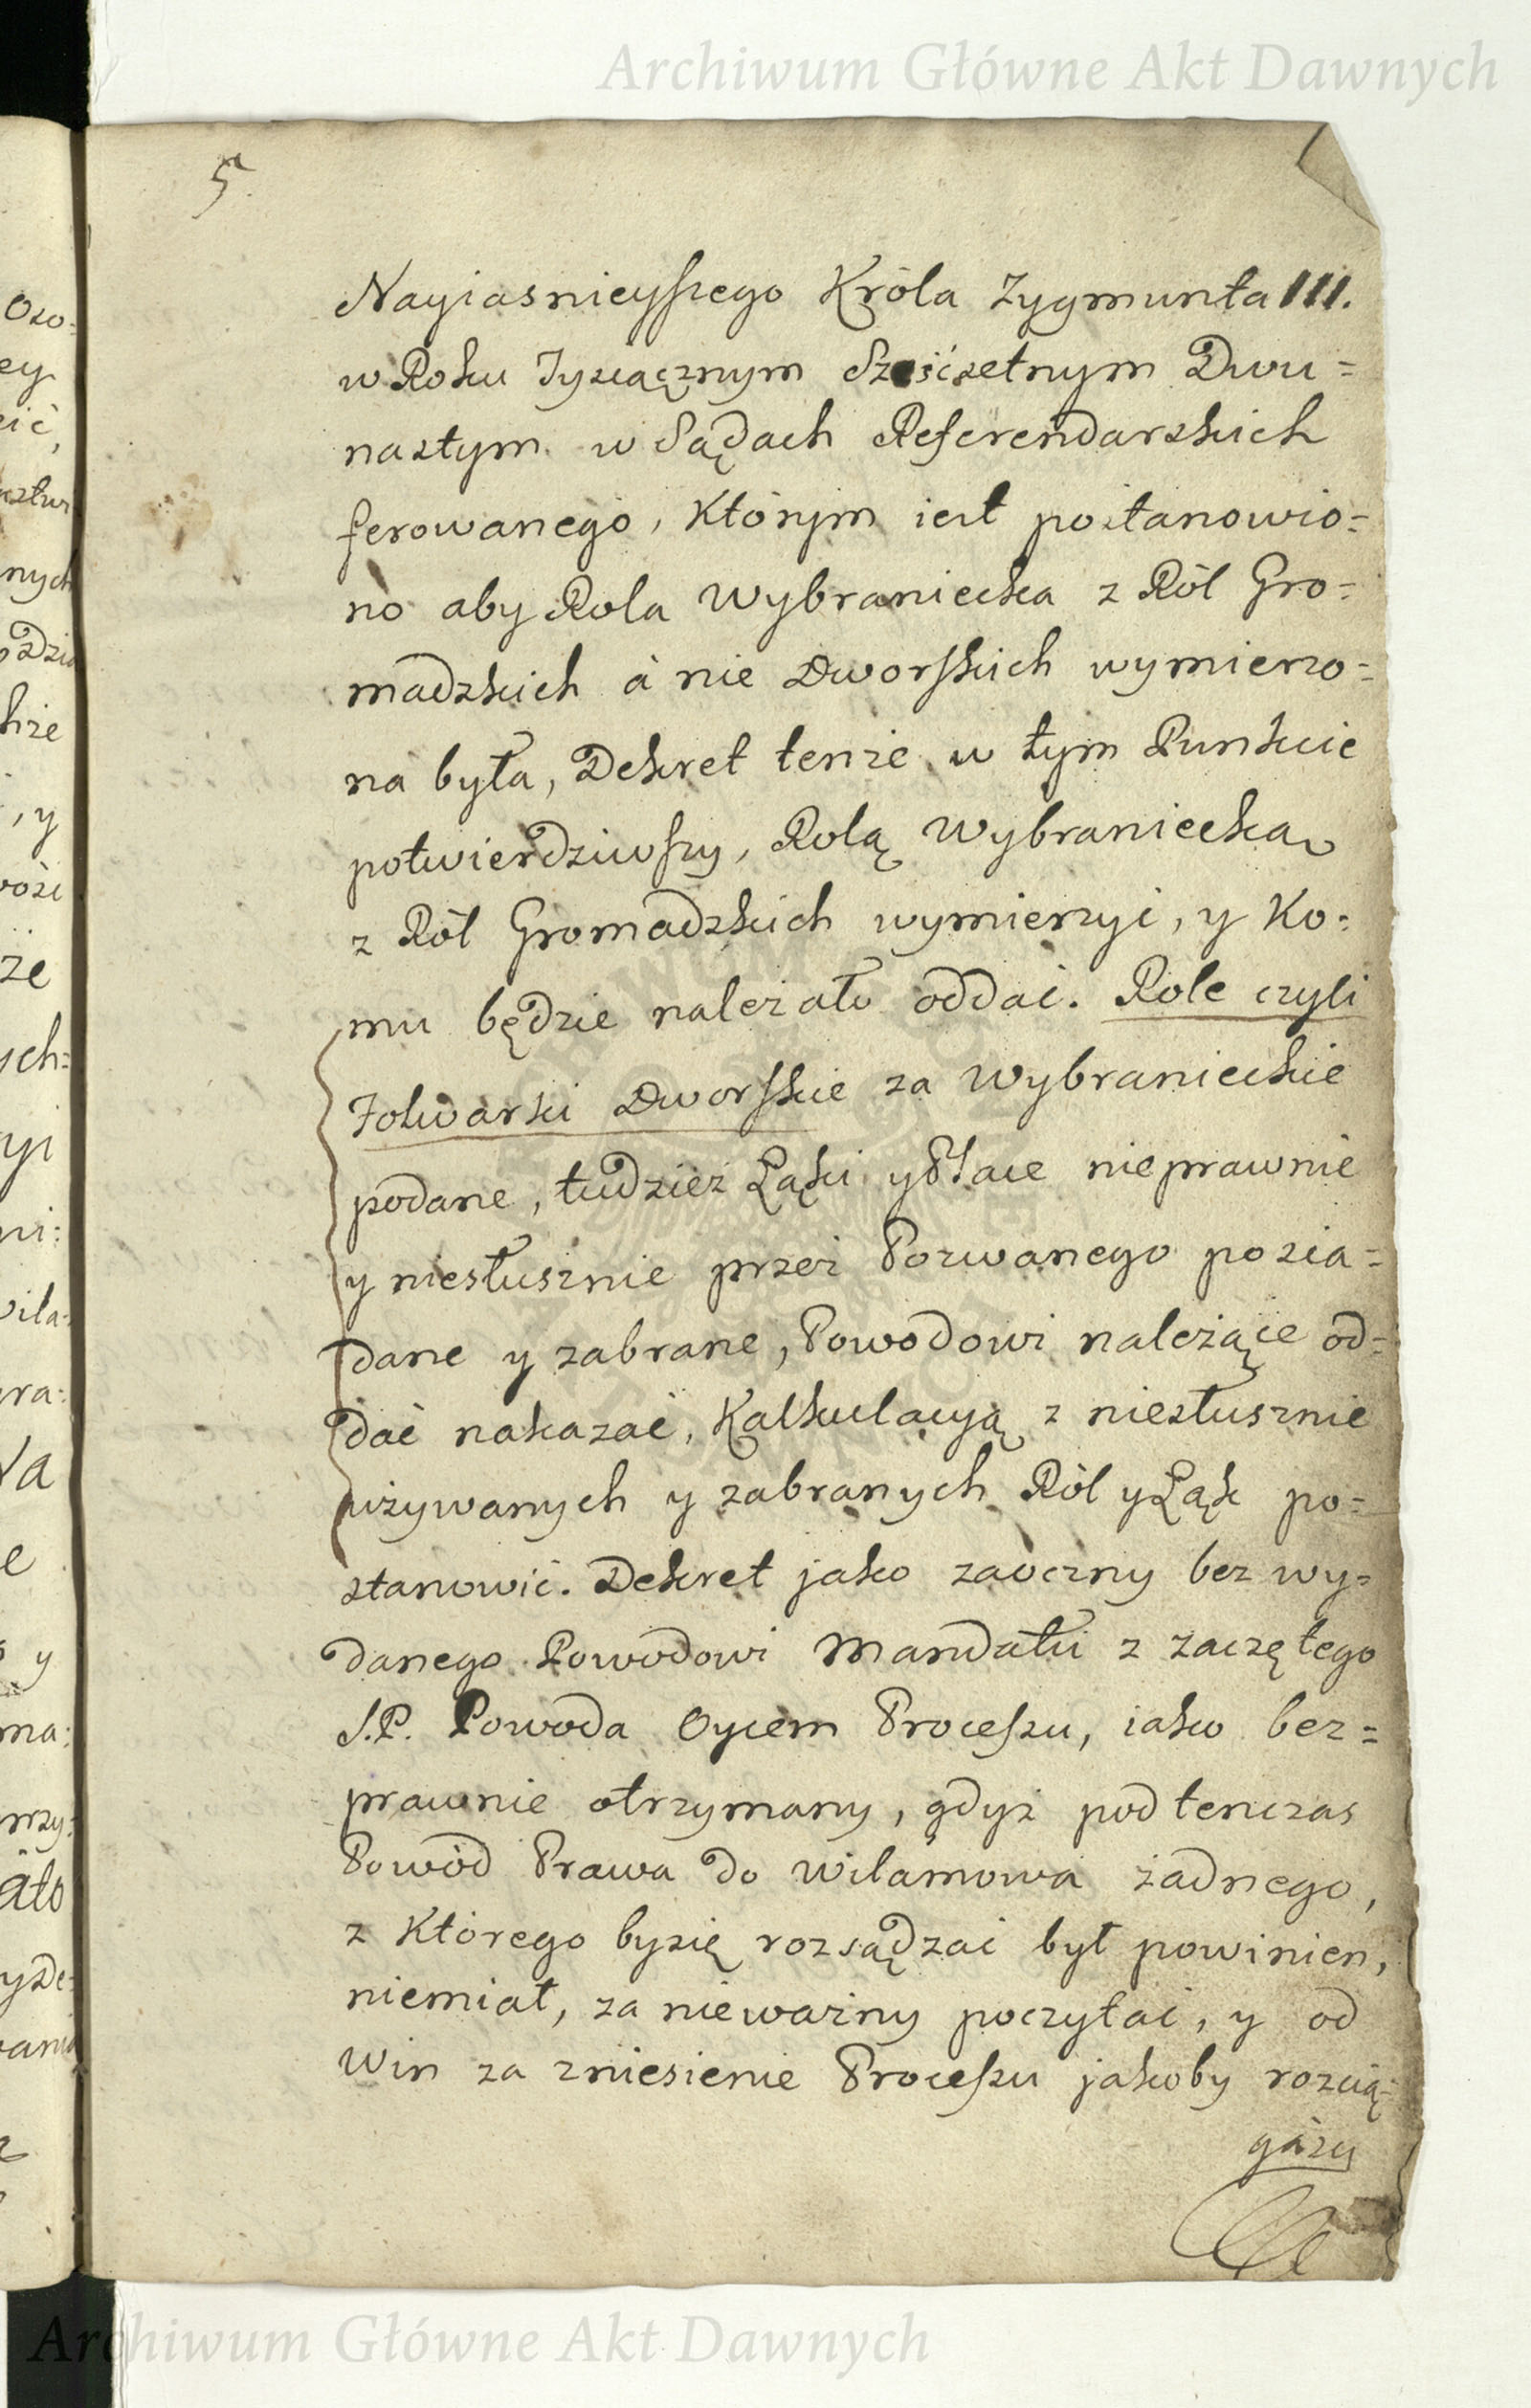 Archiwum Główne Akt Dawnych
5.
Nayiasnieyszego Króla Zygmunta III.
w Roku Tysiącznym Sześćsetnym Dwu=
nastym w Sądach Referendarskich
ferowanego, którym iest postanowio=
no aby Rola Wybraniecka z Ról Gro=
madzkich à nie Dworskich wymierzo=
na była, Dekret tenże w tym Punkcie
potwierdziwszy, Rolą Wybraniecką
z Ról Gromadzkich wymierzyć, y Ko=
mu będzie należało oddać. Role czyli
Folwarki Dworskie za Wybranieckie
podane, tudzież Łąki y Place nieprawnie
y niesłusznie przez Pozwanego posia=
dane y zabrane, Powodowi należące od=
dać nakazać, Kalkulacyą z niesłusznie
używanych y zabranych Ról y Łąk po=
stanowić. Dekret jako zaoczny bez wy=
danego Powodowi Mandatu z zaczętego
S.P. Powoda Oycem Processu, iako bez=
prawnie otrzymany, gdyż podtenczas
Powód Prawa do Wilamowa żadnego,
z Którego bysię rozsądzać był powinien,
niemiał, za nieważny poczytać, y od
Win za zniesienie Processu jakoby rozcią=
gázy
Oso=
ey
eić,
nych
że
, y
ze
ych=
yi
ni:
wila=
ra:
e
y
ma:
rzy:
áło
yde=
Archiwum Główne Akt Dawnych